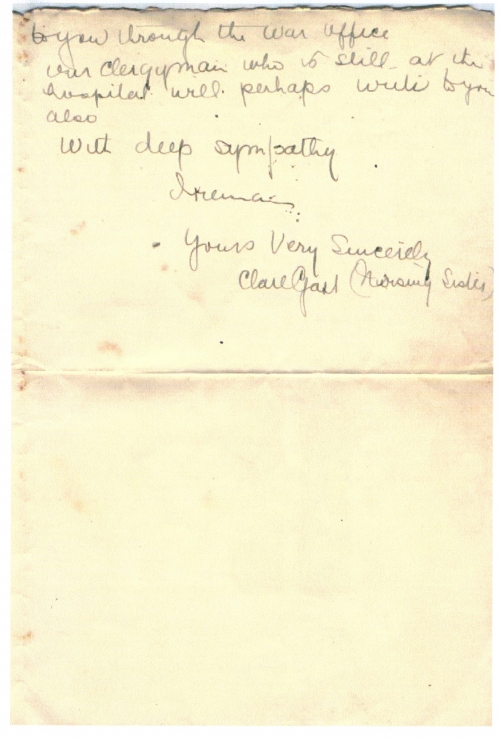 to you through the War Office
our Clergyman who is still at the
hospital will perhaps write to you
also
With deep sympathy
I remain
Yours Very Sincerely
Clare Gass (Nursing Sister)